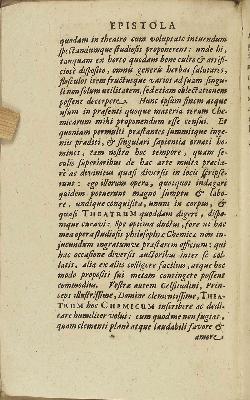 EPISTOLA
quodam in theatro cum voluptate intuendum
spectandumque studiosis proponerent: unde illi,
tanquam ex horto quodam bene culto & arti-
ficiose disposito, omnis generis herbas salutares,
flosculos item fructusque varios ad suam singu-
li non solum utilitatem, sed etiam oblectationem
possent decerpere. Hunc ipsum finem atque
usum in præsenti quoque materia rerum Che-
micarum mihi proponendum esse censui. Et
quoniam permulti præstantes summique inge-
nio præditi, & singulari sapientia ornati ho-
mines, tam nostro hoc tempore, quam se-
culis superioribus de hac arte multa præcla-
rè ac devinctus quasi diversis in locis scripse-
runt: ego illorum opera, quotquot indagare
quidem potuerunt magno sumptu & labo-
re, undique conquisita, unum in corpus, &
quasi THEATRUM quoddam digeri, dispo-
nique curavi: Spe optima ductus, fore ut hoc
mea opera studiosis philosophiæ Chemicæ non in-
jucundum ingratumve præstarem officium: qui
hac occasione diversis authoribus inter se col-
latis, alia ex aliis colligere facilius, atque hoc
modo propositi sui metam contingere possent
commodius. Vestræ autem Celsitudini, Prin-
ceps illustrissime, Domine clementissime, THEA-
TRUM hoc CHEMICUM inscribere ac dedi-
care humiliter volui: cum quod me non fugiat,
quam clementi planè atque laudabili favore &
amore